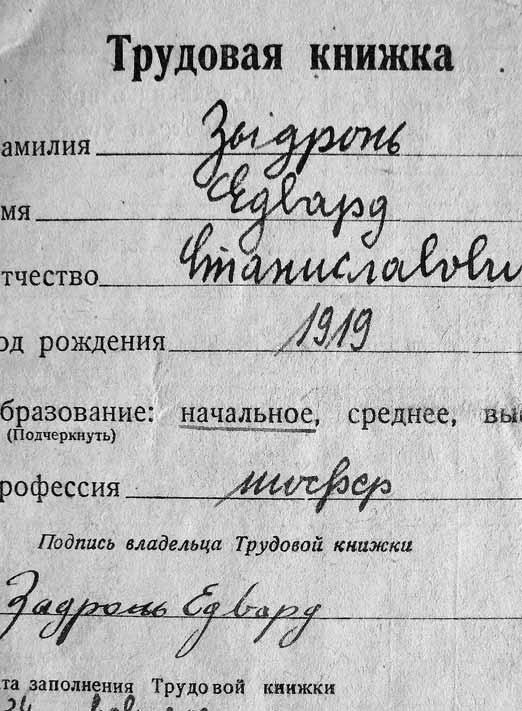 Трудовая книжка
амилия Зыдронь
мя Едвард
тчество Станиславови
од рождения 1919
бразование: начальное, среднее, вы
(Подчеркнуть)
рофессия шофер
Подпись владельца Трудовой книжки
Задронь Едвард
та заполнения Трудовой книжки
24